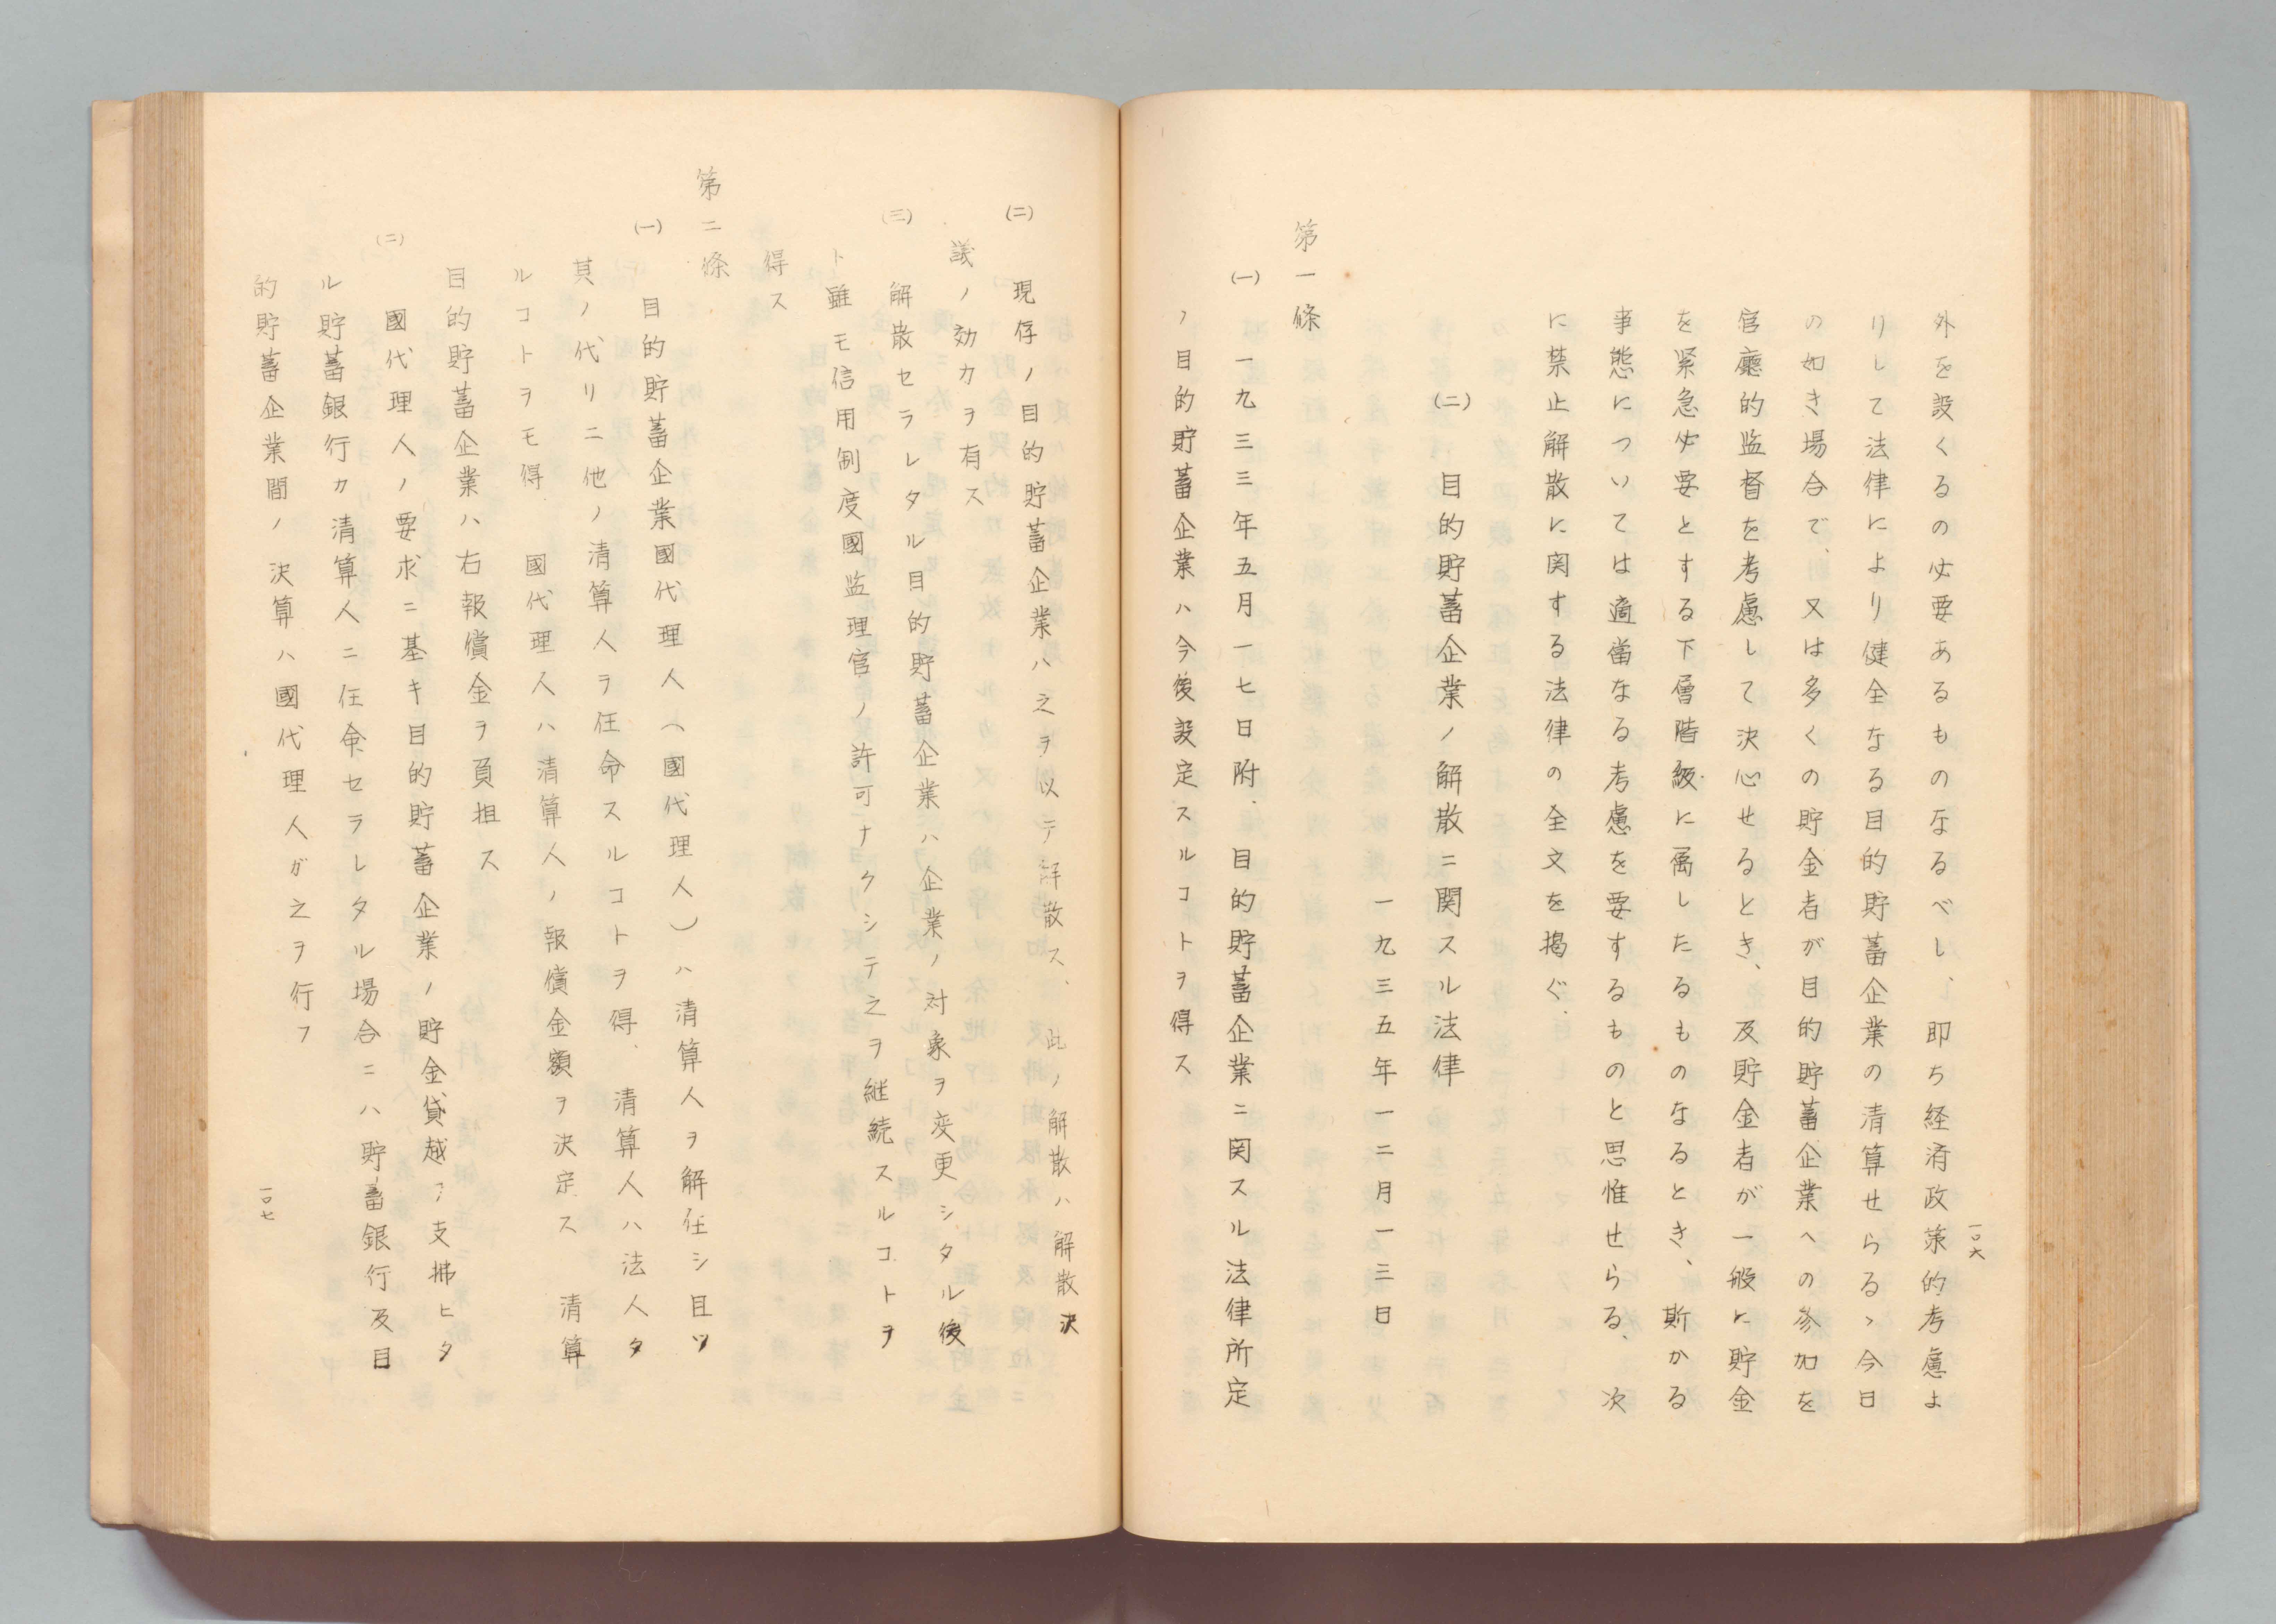 外を設くるの必要あるものなるべし、即ち経済政策的考慮よ
りして法律により健全なる目的貯蓄企業の清算せらるゝ今日
の如き場合で、又は多くの貯金者が目的貯蓄企業への参加を
官廳的監督を考慮して決心せるとき、及貯金者が一般に貯金
を緊急必要とする下層階級に属したるものなるとき、斯かる
事態については適當なる考慮を要するものと思惟せらる、次
に禁止解散に関する法律の全文を掲ぐ.
(二) 目的貯蓄企業ノ解散ニ関スル法律
一九三五年一二月一三日
第一條
(一) 一九三三年五月一七日附.目的貯蓄企業ニ関スル法律所定
ノ目的貯蓄企業ハ今後設定スルコトヲ得ス
一〇六
(二) 現存ノ目的貯蓄企業ハ之ヲ以テ解散ス、此ノ解散ハ解散決
議ノ効力ヲ有ス
(三) 解散セラレタル目的貯蓄企業ハ企業ノ対象ヲ変更シタル後
ト雖モ信用制度國監理官ノ許可ナクシテ之ヲ継続スルコトヲ
得ス
第二條
(一) 目的貯蓄企業國代理人(國代理人)ハ清算人ヲ解任シ且ツ
其ノ代リニ他ノ清算人ヲ任命スルコトヲ得、清算人ハ法人タ
ルコトヲモ得 國代理人ハ清算人ノ報償金額ヲ決定ス 清算
目的貯蓄企業ハ右報償金ヲ負担ス
(二) 國代理人ノ要求ニ基キ目的貯蓄企業ノ貯金貸越ヲ支拂ヒタ
ル貯蓄銀行カ清算人ニ任命セラレタル場合ニハ貯蓄銀行及目
的貯蓄企業間ノ決算ハ國代理人ガ之ヲ行フ
一〇七